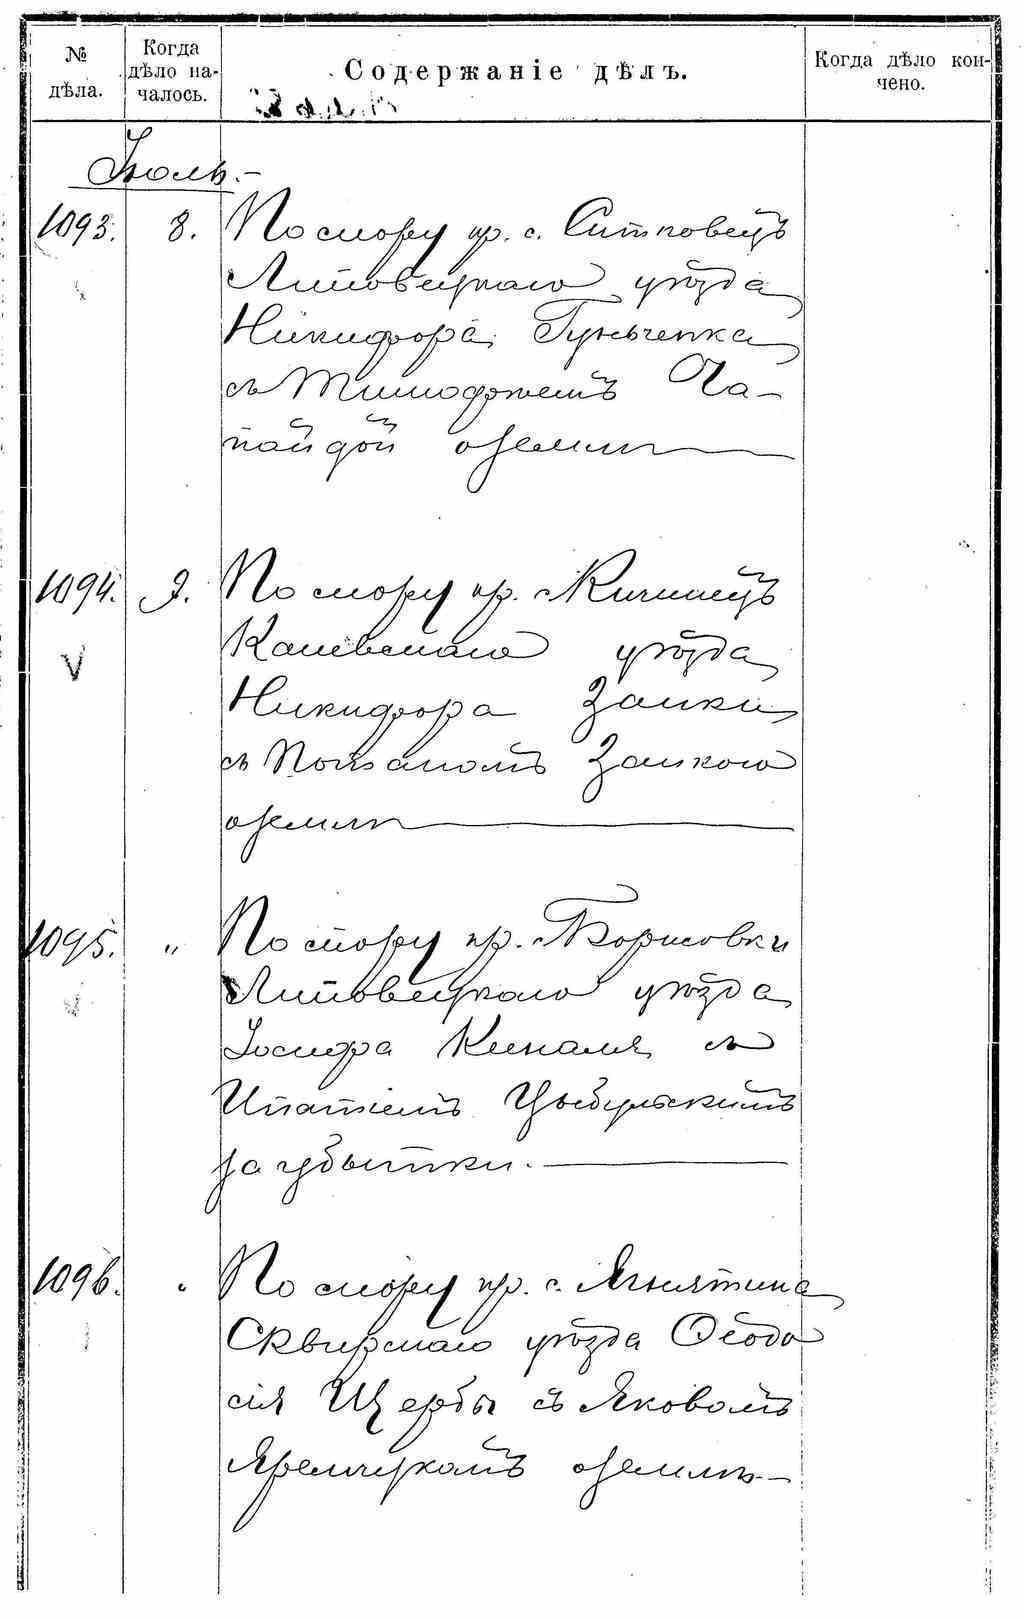 № дѣла.
Когда дѣло на-
чалось.
Содержаніе дѣлъ.
Когда дѣло кон-
чено.
Іюль.-
1093. 8. По спору кр. с. Ситковецъ
Липовецкаго уѣзда
Никифора Гуньченка
съ Тимофеемъ Ча-
пайдой о землѣ
1094. 9. По спору кр. с. Кичинецъ
Каневскаго уѣзда
Никифора Заики
съ Потапомъ Заикою
о землѣ
1095. " По спору кр. с. Борисовки
Липовецкаго уѣзда
Іосифа съ
Ипатіемъ Цыбульскимъ
за убытки.
1096. " По спору кр. с. Ягнятина
Сквирскаго уѣзда Ѳеодо
сія Щербы съ Яковомъ
Яремчукомъ о землѣ-